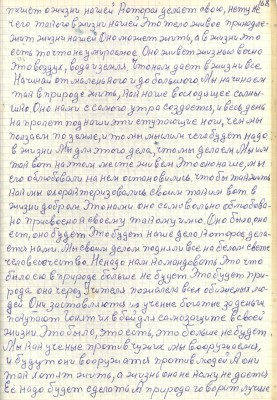 168
пишет о жизни нашей которая делает свою, нету
чего такого в жизни нашей это тело живое принадле-
жит жизни нашей оно может жить, а в жизни это
есть то что не умираемое Оно живет жизнью вечно
Это воздух, вода и земля. Что нам дает в жизни все
Начиная от маленького и до большого Мы начинаем
так жить, как наше восходящее солны-
шко Оно нами с самого утра создается, и весь день
на пролет под наши эти ступающие ноги, чем мы
ползаем по земле, и то мы мыслим чего будет надо
в жизни. Мы для этого дела, что мы делаем Мы им
так вот на этом месте живем Это оно наше, мы
его облюбовали на нем остановились, чтобы так жить
как мы охарактеризовались своим таким вот в
жизни добром. Это нами оно само вольно облюбова-
но Присвоено к своему такому имю. Оно было, оно
есть, оно будет Это будет наше дело, которое дела-
ется нами. Мы своим делом подняли все на белом свете
человечество. Не надо нам командовать Это что
было оно в природе больше не будет Это будет при-
рода она через Учителя пожалела всех обиженых лю-
дей Они заставляются ученые богатые за деньги
покупают Гонят их в бой для самозащиты в своей
жизни Это было, это есть, это больше не будет.
Мы как ученые против чужих мы вооружаемся,
и будут они вооружатся против людей А они
так хотят жить, а жизнь она не кому не дается
Ее надо будет сделать А природа говорит лучше